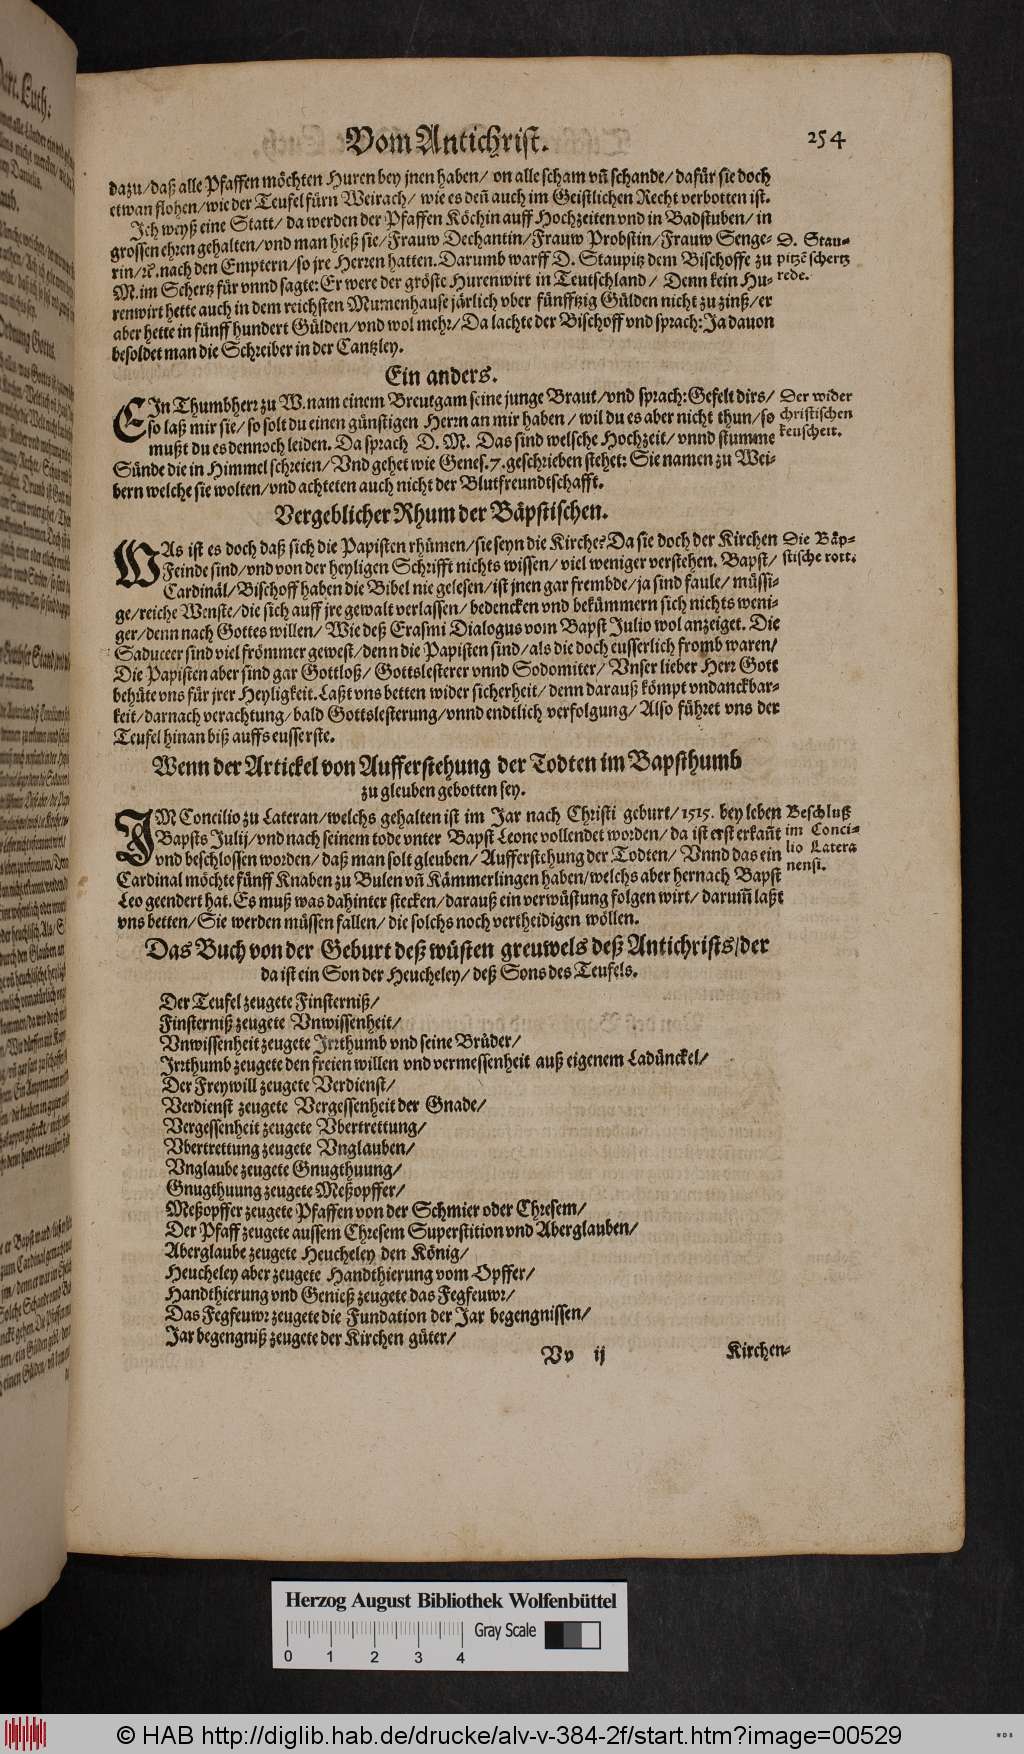 Vom Antichrist. 254
dazu/daß alle Pfaffen möchten Huren bey jnen haben/ on alle scham vñ schande/dafür sie doch
etwan flohen/wie der Teufel fürn Weirach/ wie es deñ auch im Geistlichen Recht verbotten ist.
Ich weyß eine Statt/ da werden der Pfaffen Köchin auff Hochzeiten vnd in Badstuben/ in
grossen ehren gehalten/vnd man hieß sie/Frauw Dechantin/Frauw Probstin/Frauw Senge-
rin/ꝛc. nach den Emptern/so jre Herren hatten. Darumb warff D. Staupitz dem Bischoffe zu
M. im Schertz für vnnd sagte: Er were der gröste Hurenwirt in Teutschland/ Denn kein Hu-
renwirt hette auch in dem reichsten Mumenhause järlich vber fünfftzig Gülden nicht zu zinß/er
aber hette in fünff hundert Gülden/vnd wol mehr/Da lachte der Bischoff vnd sprach: Ja dauon
besoldet man die Schreiber in der Cantzley.
D. Stau-
pitzẽ schertz
rede.
Ein anders.
EIn Thumbherr zu W. nam einem Breutgam seine junge Braut/vnd sprach: Gefelt dirs/
so laß mir sie/so solt du einen günstigen Herrn an mir haben/ wil du es aber nicht thun/so
mußt du es dennoch leiden. Da sprach D. M. Das sind welsche Hochzeit/vnnd stumme
Sünde die in Himmel schreien/Vnd gehet wie Genes. 7. geschrieben stehet: Sie namen zu Wei-
bern welche sie wolten/vnd achteten auch nicht der Blutfreundtschafft.
Der wider
christischen
keuscheit.
Vergeblicher Rhum der Bäpstischen.
WAs ist es doch daß sich die Papisten rhümen/sie seyn die Kirche? Da sie doch der Kirchen
Feinde sind/vnd von der heyligen Schrifft nichts wissen/ viel weniger verstehen. Bapst/
Cardinäl/Bischoff haben die Bibel nie gelesen/ist jnen gar frembde/ja sind faule/ müssi-
ge/reiche Wenste/die sich auff jre gewalt verlassen/ bedencken vnd bekümmern sich nichts weni-
ger/denn nach Gottes willen/ Wie deß Erasmi Dialogus vom Bapst Julio wol anzeiget. Die
Saduceer sind viel frömmer gewest/denn die Papisten sind/als die doch eusserlich fromb waren/
Die Papisten aber sind gar Gottloß/ Gottslesterer vnnd Sodomiter/ Vnser lieber Herr Gott
behüte vns für jrer Heyligkeit. Laßt vns betten wider sicherheit/ denn darauß kömpt vndanckbar-
keit/darnach verachtung/bald Gottslesterung/vnnd endtlich verfolgung/ Also führet vns der
Teufel hinan biß auffs eusserste.
Die Bäp-
stische rott.
Wenn der Artickel von Aufferstehung der Todten im Bapsthumb
zu gleuben gebotten sey.
IM Concilio zu Lateran/welchs gehalten ist im Jar nach Christi geburt/1515. bey leben
Bapsts Julij/vnd nach seinem tode vnter Bapst Leone vollendet worden/da ist erst erkañt
vnd beschlossen worden/ daß man solt gleuben/ Aufferstehung der Todten/ Vnnd das ein
Cardinal möchte fünff Knaben zu Bulen vñ Kämmerlingen haben/welchs aber hernach Bapst
Leo geendert hat. Es muß was dahinter stecken/darauß ein verwüstung folgen wirt/ darum̃ laßt
vns betten/Sie werden müssen fallen/ die solchs noch vertheidigen wöllen.
Beschluß
im Conci-
lio Latera
nensi.
Das Buch von der Geburt deß wüsten greuwels deß Antichrists/der
da ist ein Son der Heucheley/ deß Sons des Teufels.
Der Teufel zeugete Finsterniß/
Finsterniß zeugete Vnwissenheit/
Vnwissenheit zeugete Irrthumb vnd seine Brüder/
Irrthumb zeugete den freien willen vnd vermessenheit auß eigenem Ladünckel/
Der Freywill zeugete Verdienst/
Verdienst zeugete Vergessenheit der Gnade/
Vergessenheit zeugete Vbertrettung/
Vbertrettung zeugete Vnglauben/
Vnglaube zeugete Gnugthuung/
Gnugthuung zeugete Meßopffer/
Meßopffer zeugete Pfaffen von der Schmier oder Chresem/
Der Pfaff zeugete aussem Chresem Superstition vnd Aberglauben/
Aberglaube zeugete Heucheley den König/
Heucheley aber zeugete Handthierung vom Opffer/
Handthierung vnd Genieß zeugete das Fegfeuwr/
Das Fegfeuwr zeugete die Fundation der Jar begengnissen/
Jar begengniß zeugete der Kirchen güter/
Vv ij Kirchen-
Herzog August Bibliothek Wolfenbüttel
Gray Scale
0 1 2 3 4
© HAB http://diglib.hab.de/drucke/alv-v-384-2f/start.htm?image=00529